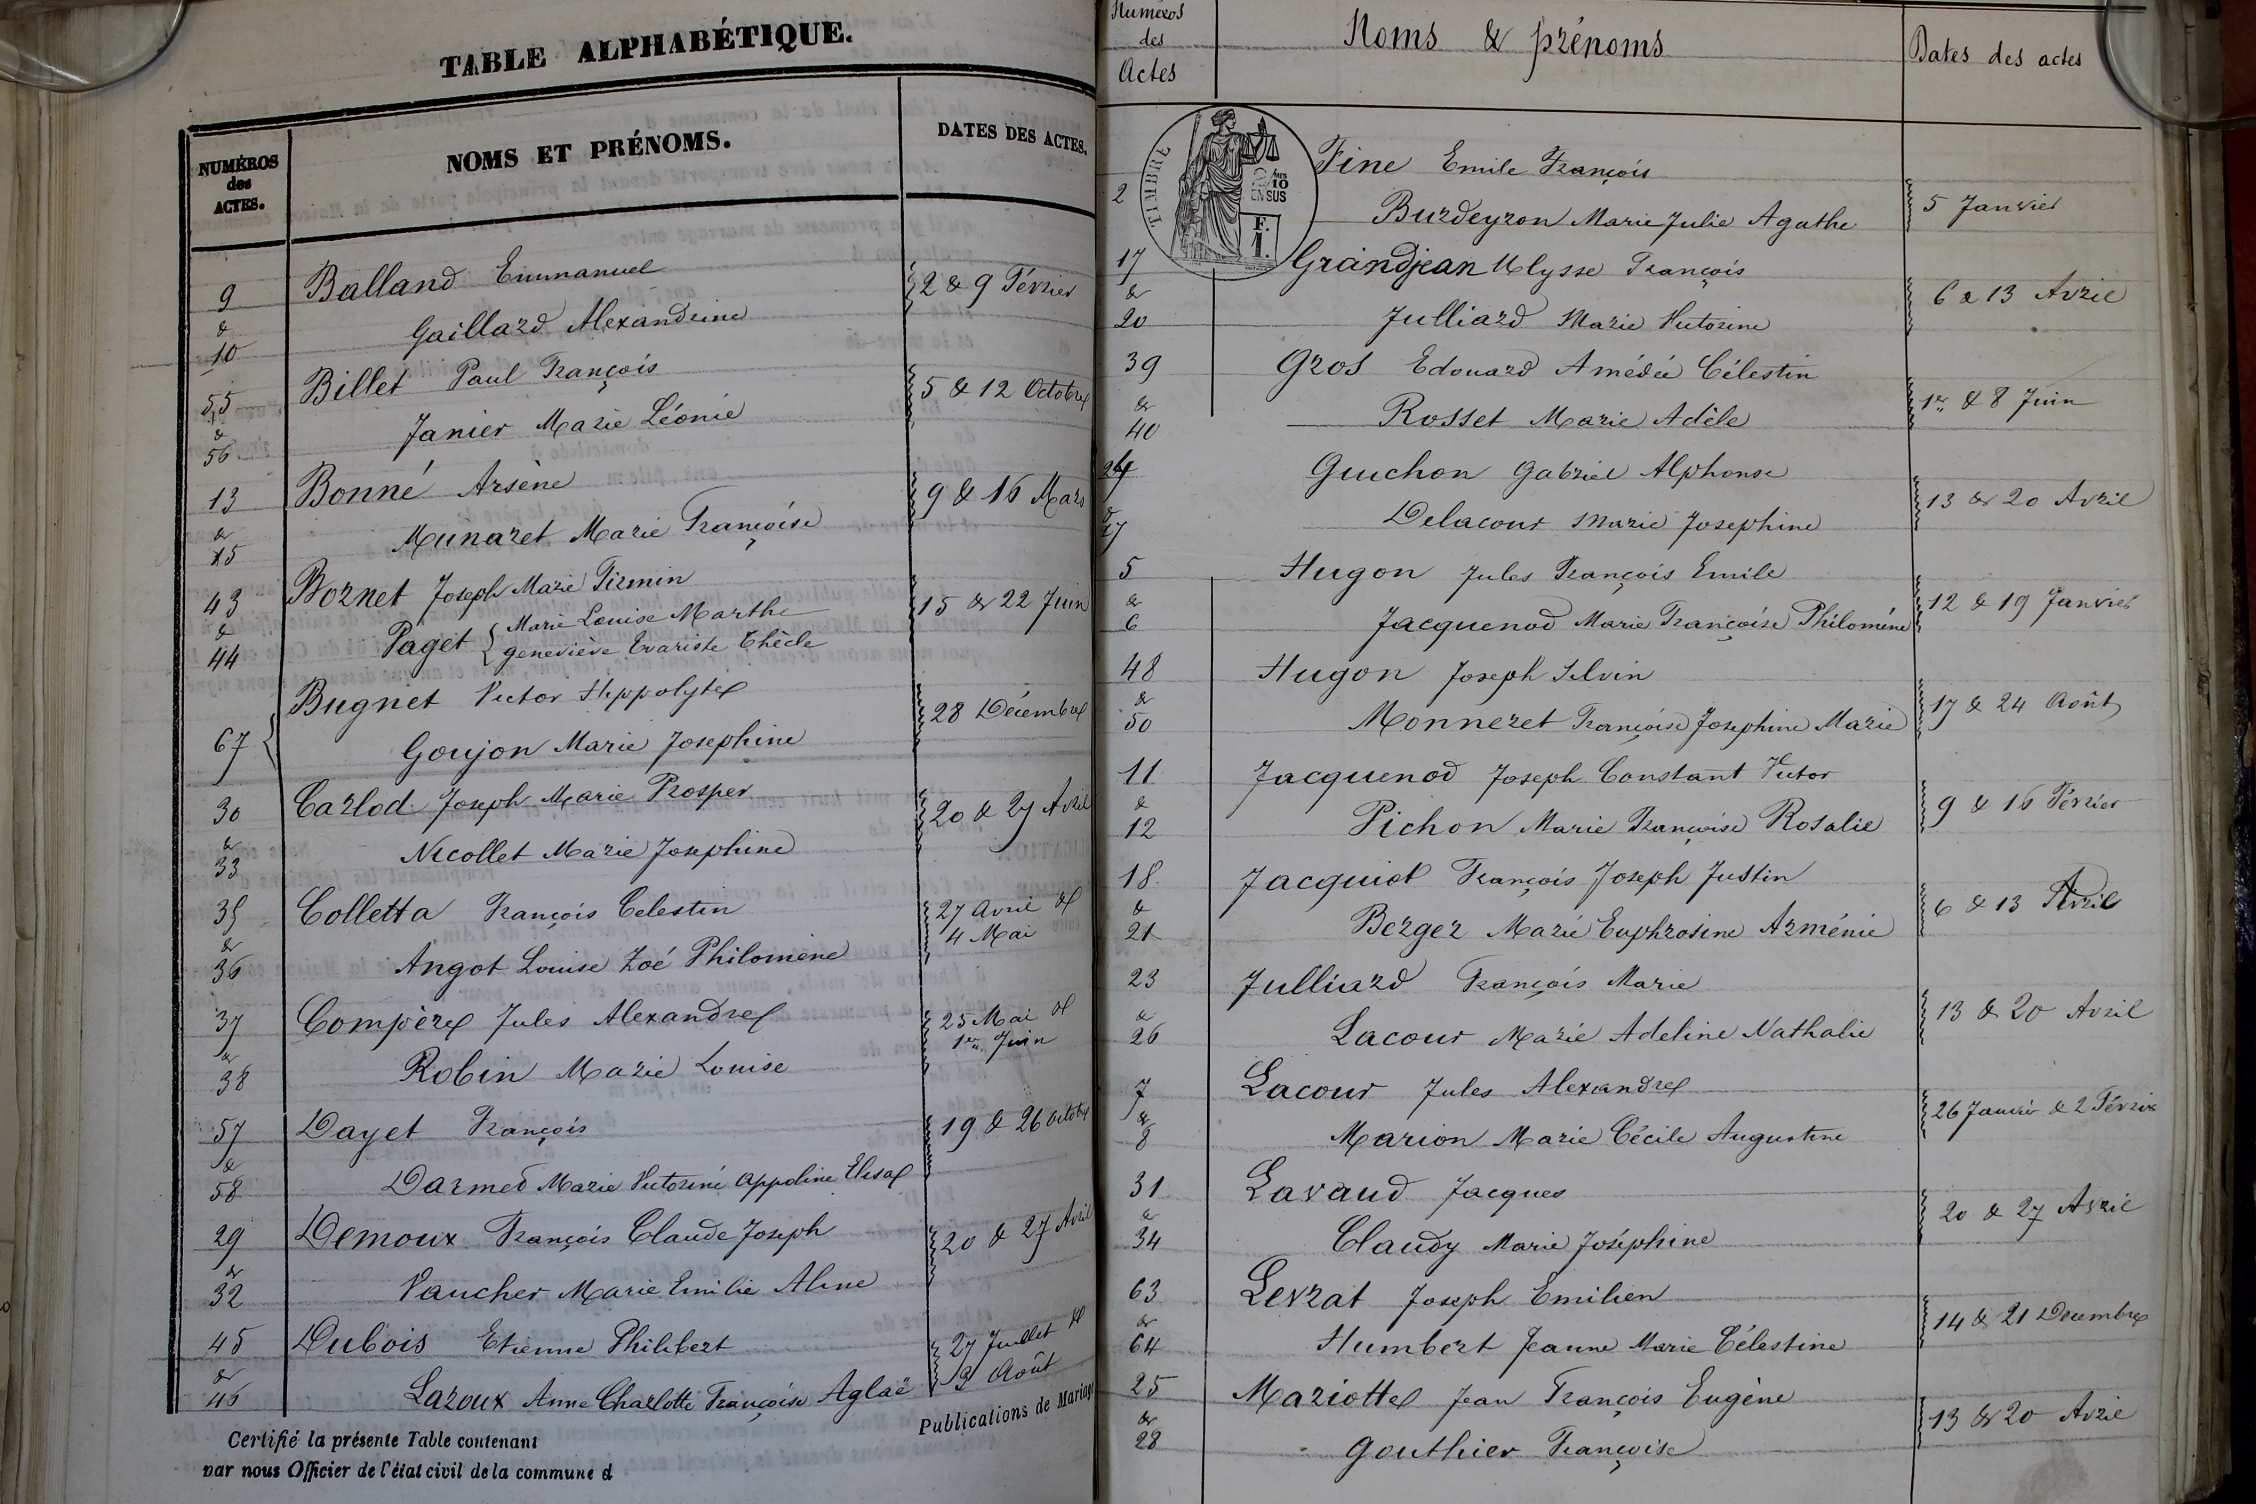 TABLE ALPHABÉTIQUE.
NUMÉROS des ACTES.
NOMS ET PRÉNOMS.
DATES DES ACTES.
9 Balland Emmanuel 2 & 9 Février
&
10 Gaillard Alexandrine
55 Billet Paul François 5 & 12 Octobre
&
56 Janier Marie Léonie
13 Bonné Arsène 9 & 16 Mars
&
15 Munaret Marie Françoise
43 Bornet Joseph Marie Firmin 15 & 22 Juin
&
44 Paget { Marie Louise Marthe
geneviève Evariste Thècle
67 { Bugnet Victor Hippolyte 28 Décembre
Goujon Marie Josephine
30 Carlod Joseph Marie Prosper 20 & 27 Avril
&
33 Nicollet Marie Josephine
35 Colletta François Celestin 27 Avril &
4 Mai
&
36 Angot Louise Zoé Philomène
37 Compère Jules Alexandre 25 Mai &
1er Juin
&
38 Robin Marie Louise
57 Dayet François 19 & 26 octobre
&
58 Darmed Marie Victorine Appoline Elisa
29 Demoux François Claude Joseph 20 & 27 Avril
&
32 Vaucher Marie Emilie Aline
45 Dubois Etienne Philibert 27 Juillet &
3 Août
&
46 Laroux Anne Charlotte Françoise Aglaë
Certifié la présente Table contenant Publications de Mariage
par nous Officier de l'état civil de la commune d
Numéros des Actes
Noms & prénoms
Dates des actes
TIMBRE
2/10 EN SUS
F. 1.
Fine Emile François
2 5 Janvier
Burdeyron Marie Julie Agathe
17 Grandjean Ulysse François 6 & 13 Avril
&
20 Julliard Marie Victorine
39 Gros Edouard Amédée Célestin 1er & 8 Juin
&
40 Rosset Marie Adèle
24 Guichon Gabriel Alphonse 13 & 20 Avril
&
27 Delacour Marie Josephine
5 Hugon Jules François Emile 12 & 19 Janvier
&
6 Jacquenod Marie Françoise Philomène
48 Hugon Joseph Silvin 17 & 24 Août
&
50 Monneret Françoise Josephine Marie
11 Jacquenod Joseph Constant Victor 9 & 16 Février
&
12 Pichon Marie Françoise Rosalie
18 Jacquiot François Joseph Justin 6 & 13 Avril
&
21 Berger Marie Euphrosine Arménie
23 Julliard François Marie 13 & 20 Avril
&
26 Lacour Marie Adeline Nathalie
7 Lacour Jules Alexandre 26 Janvier & 2 Février
&
8 Marion Marie Cécile Augustine
31 Lavaud Jacques 20 & 27 Avril
&
34 Claudy Marie Joséphine
63 Levrat Joseph Emilien 14 & 21 Decembre
&
64 Humbert Jeanne Marie Célestine
25 Mariotte Jean François Eugène 13 & 20 Avril
&
28 Gouthier Françoise